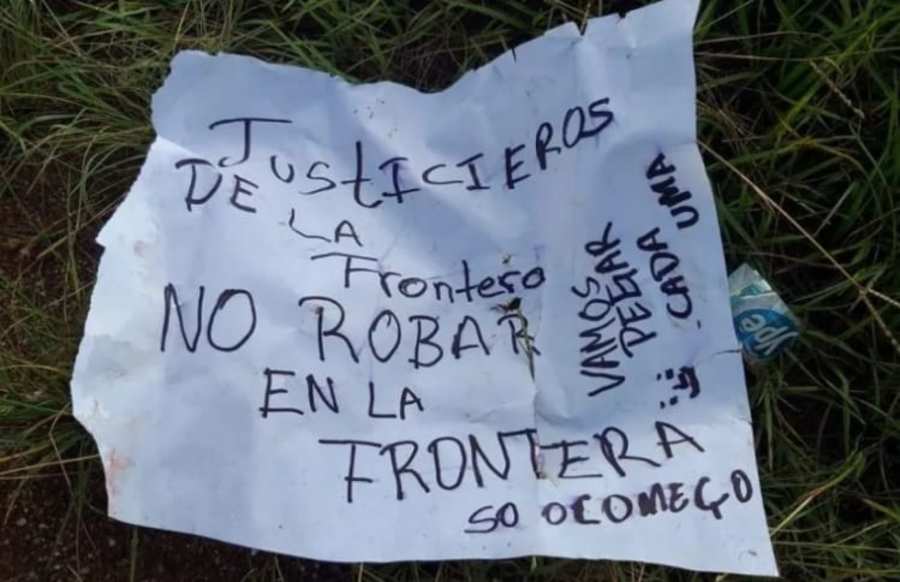 JUStICIEROS
DE
LA
Frontera
NO ROBAR
EN LA
FRONTERA
SO O COMEÇO
VAMOS
PEGAR
CADA UMA
Ype